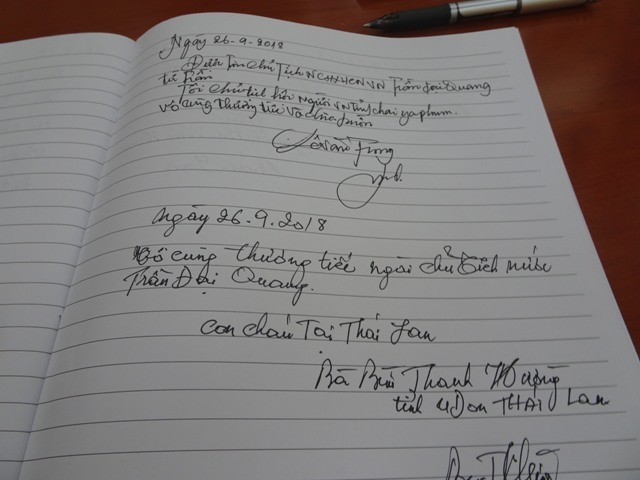 Ngày 26-9-2018
Được Tin Chủ Tịch NCHXHCNVN Trần Đại Quang
từ Trần
Tôi chủ tịch hội người VN Tỉnh chai yaphum
Vô cùng thương tiếc và
Ngày 26.9.2018
Vô cùng thương tiếc ngài chủ tịch nước
Trần Đại Quang.
con cháu Tại Thái Lan
Bà Bùi Thanh
tỉnh uDon THÁI Lan